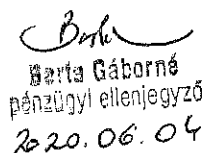 Barta Gáborné
pénzügyi ellenjegyző
2020.06.04